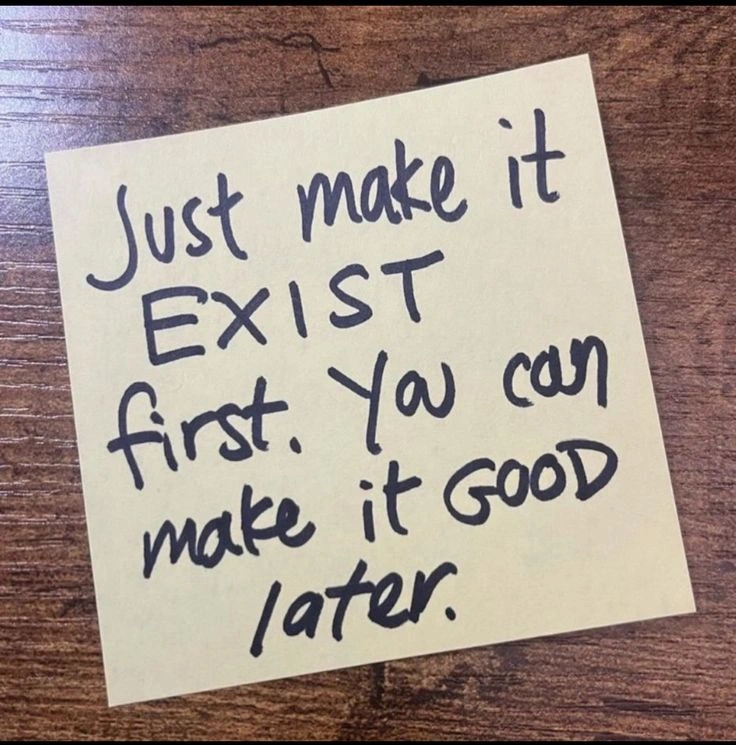 Just make it
EXIST
first. You can
make it GOOD
later.